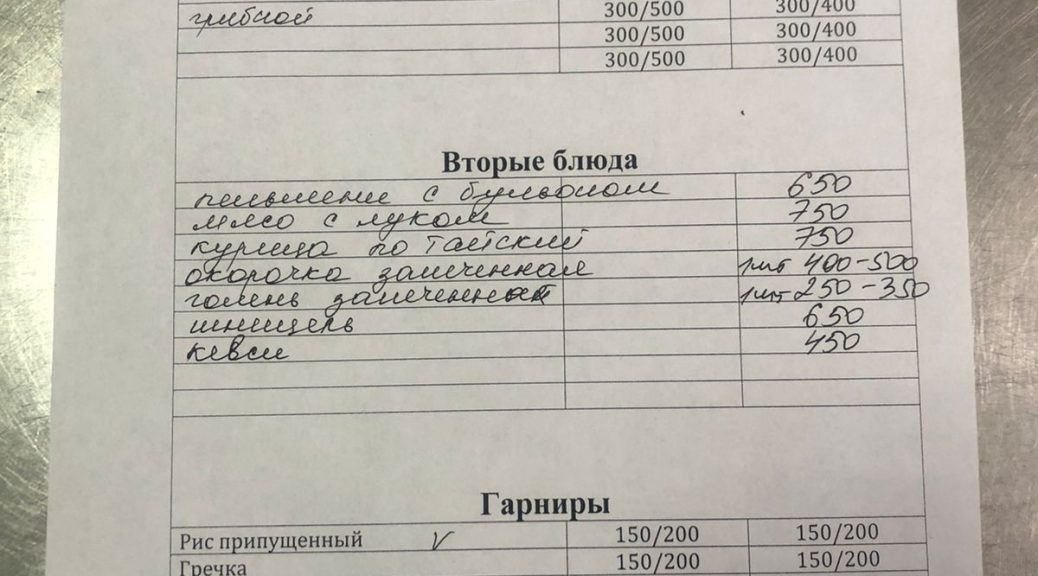 грибной 300/500 300/400
300/500 300/400
300/500 300/400
Вторые блюда
пельмение с бульоном 650
мясо с луком 750
курица по Тайский 750
окорочка запеченная 1шт 400-500
голень запеченная 1шт 250-350
шницель 650
кевси 450
Гарниры
Рис припущенный V 150/200 150/200
Гречка 150/200 150/200